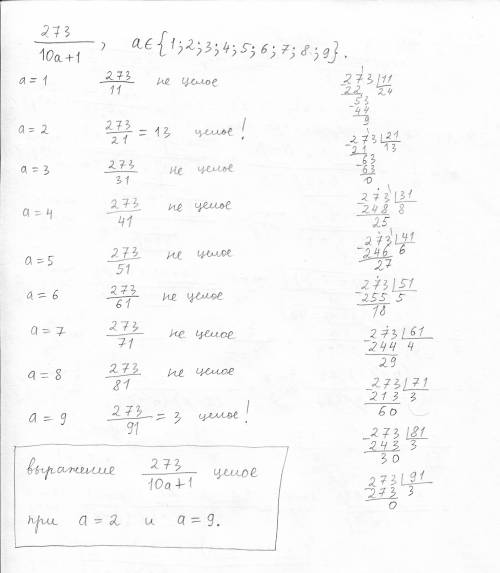 273/(10a+1), a∈{1;2;3;4;5;6;7;8;9}.
a=1 273/11 не целое
a=2 273/21 = 13 целое!
a=3 273/31 не целое
a=4 273/41 не целое
a=5 273/51 не целое
a=6 273/61 не целое
a=7 273/71 не целое
a=8 273/81 не целое
a=9 273/91 = 3 целое!
выражение 273/(10a+1) целое
при a=2 и a=9.
-273|11
22 |24
-53
44
9
-273|21
21 |13
-63
63
0
-273|31
248|8
25
-273|41
246|6
27
-273|51
255|5
18
-273|61
244|4
29
-273|71
213|3
60
-273|81
243|3
30
-273|91
273|3
0